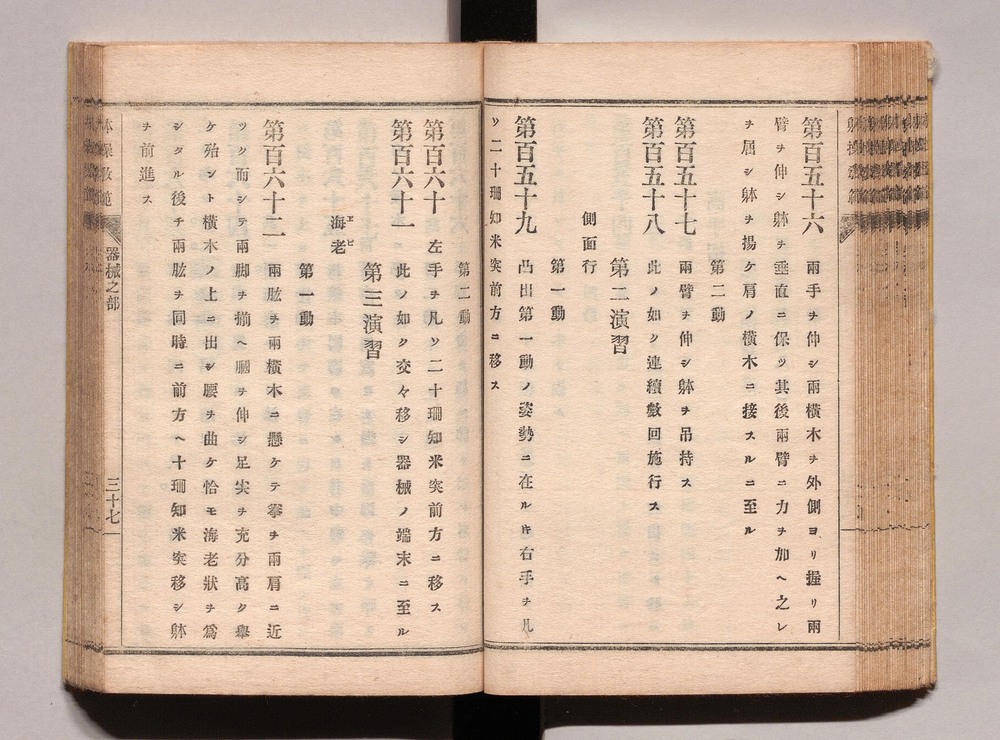 第百五十六　兩手ヲ伸シ兩橫木ヲ外側ヨリ握リ兩
臂ヲ伸シ躰ヲ垂直ニ保ツ其後兩臂ニ力ヲ加ヘ之レ
ヲ屈シ躰ヲ揚ケ肩ノ橫木ニ接スルニ至ル
第二動
第百五十七　兩臂ヲ伸シ躰ヲ吊持ス
第百五十八　此ノ如ク連續數回施行ス
第二演習
側面行
第一動
第百五十九　凸出第一動ノ姿勢ニ在ルキ右手ヲ凡
ソ二十珊知米突前方ニ移ス
第二動
第百六十　左手ヲ凡ソ二十珊知米突前方ニ移ス
第百六十一　此ノ如ク交々移シ器械ノ端末ニ至ル
第三演習
海老
エビ
第一動
第百六十二　兩肱ヲ兩橫木ニ懸ケテ拳ヲ兩肩ニ近
ツク而シテ兩脚ヲ揃ヘ膕ヲ伸シ足尖ヲ充分高ク擧
ケ殆ント橫木ノ上ニ出シ腰ヲ曲ケ恰モ海老狀ヲ爲
シタル後チ兩肱ヲ同時ニ前方ヘ十珊知米突移シ躰
ヲ前進ス
体操教範
器械之部
三十七